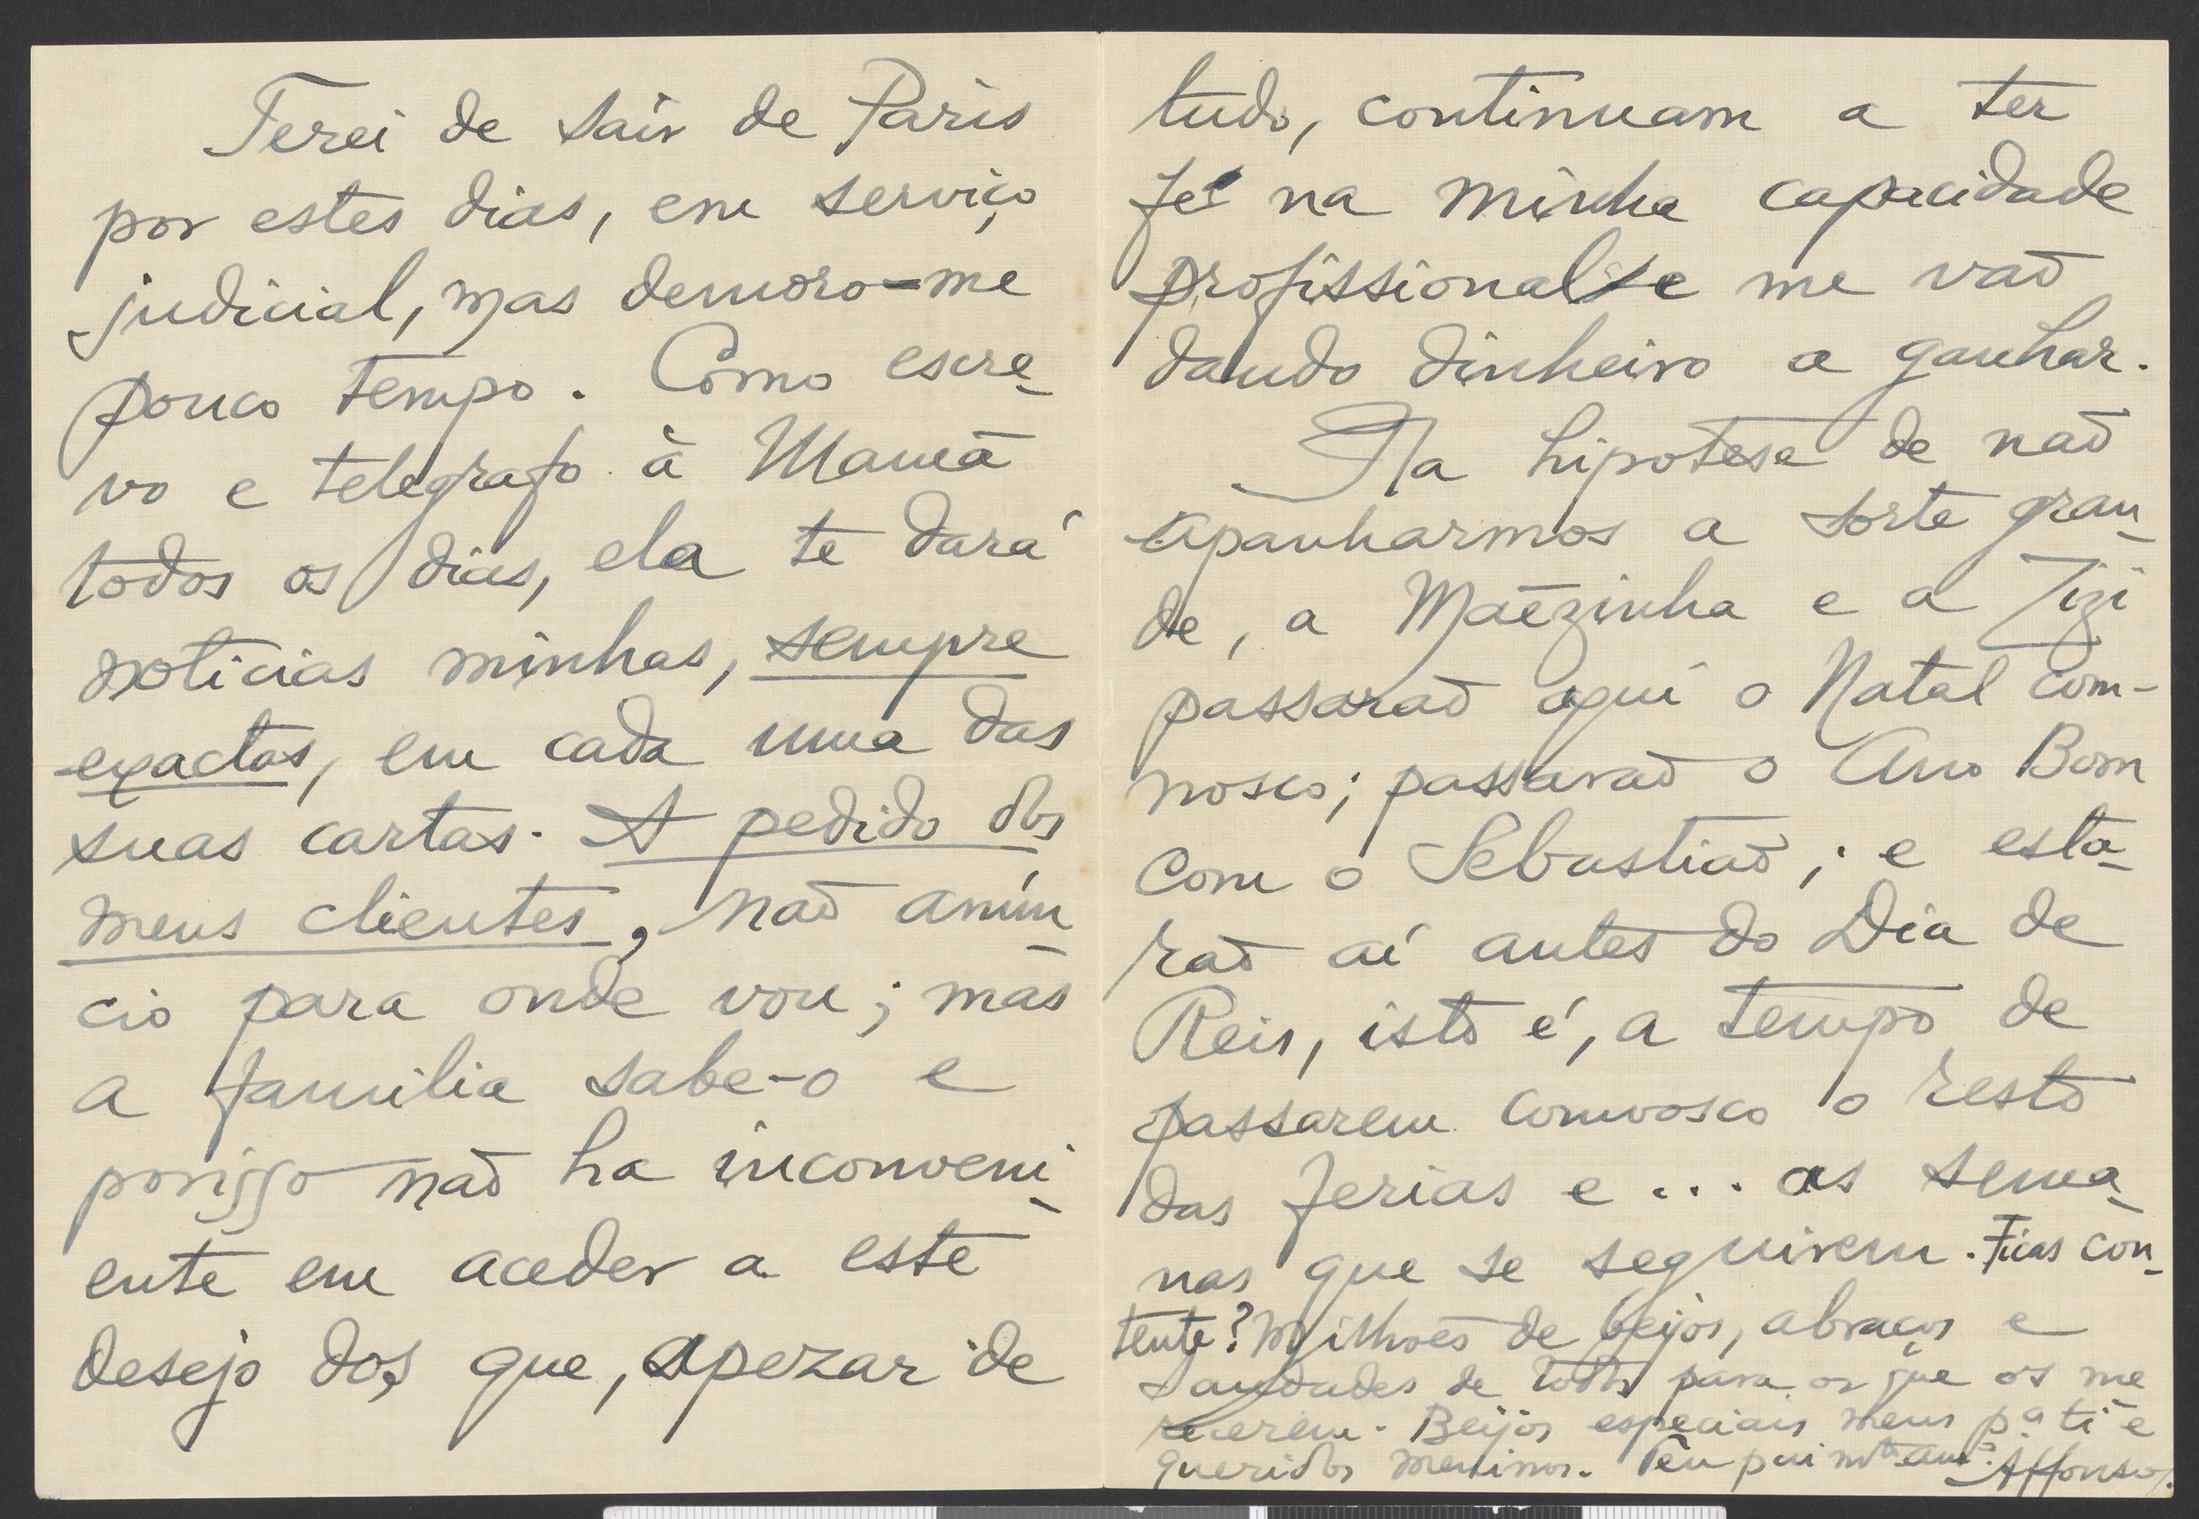 Terei de sair de Paris
por estes dias, em serviço
judicial, mas demoro-me
pouco tempo. Como escre-
vo e telegrafo à Mamã
todos os dias, ela te dará
noticias minhas, sempre
exactas, em cada uma das
suas cartas. A pedido dos
meus clientes, não anún-
cio para onde vou; mas
a familia sabe-o e
porisso não ha inconveni-
ente em aceder a este
desejo dos que, apezar de
tudo, continuam a ter
fé na minha capacidade
profissional e me vão
dando dinheiro a ganhar.
Na hipotese de não
apanharmos a sorte gran-
de, a Mãezinha e a Zizi
passarão aqui o Natal com-
nosco; passarão o Ano Bom
com o Sebastião; e esta-
rão aí antes do Dia de
Reis, isto é, a tempo de
passarem comvosco o resto
das ferias e ... as sema-
nas que se seguirem. Ficas con-
tente? Milhões de beijos, abraços e
saudades de todos para os que os me
recerem. Beijos especiais meus pª ti e
queridos meninos. Teu pai mto amº Affonso.